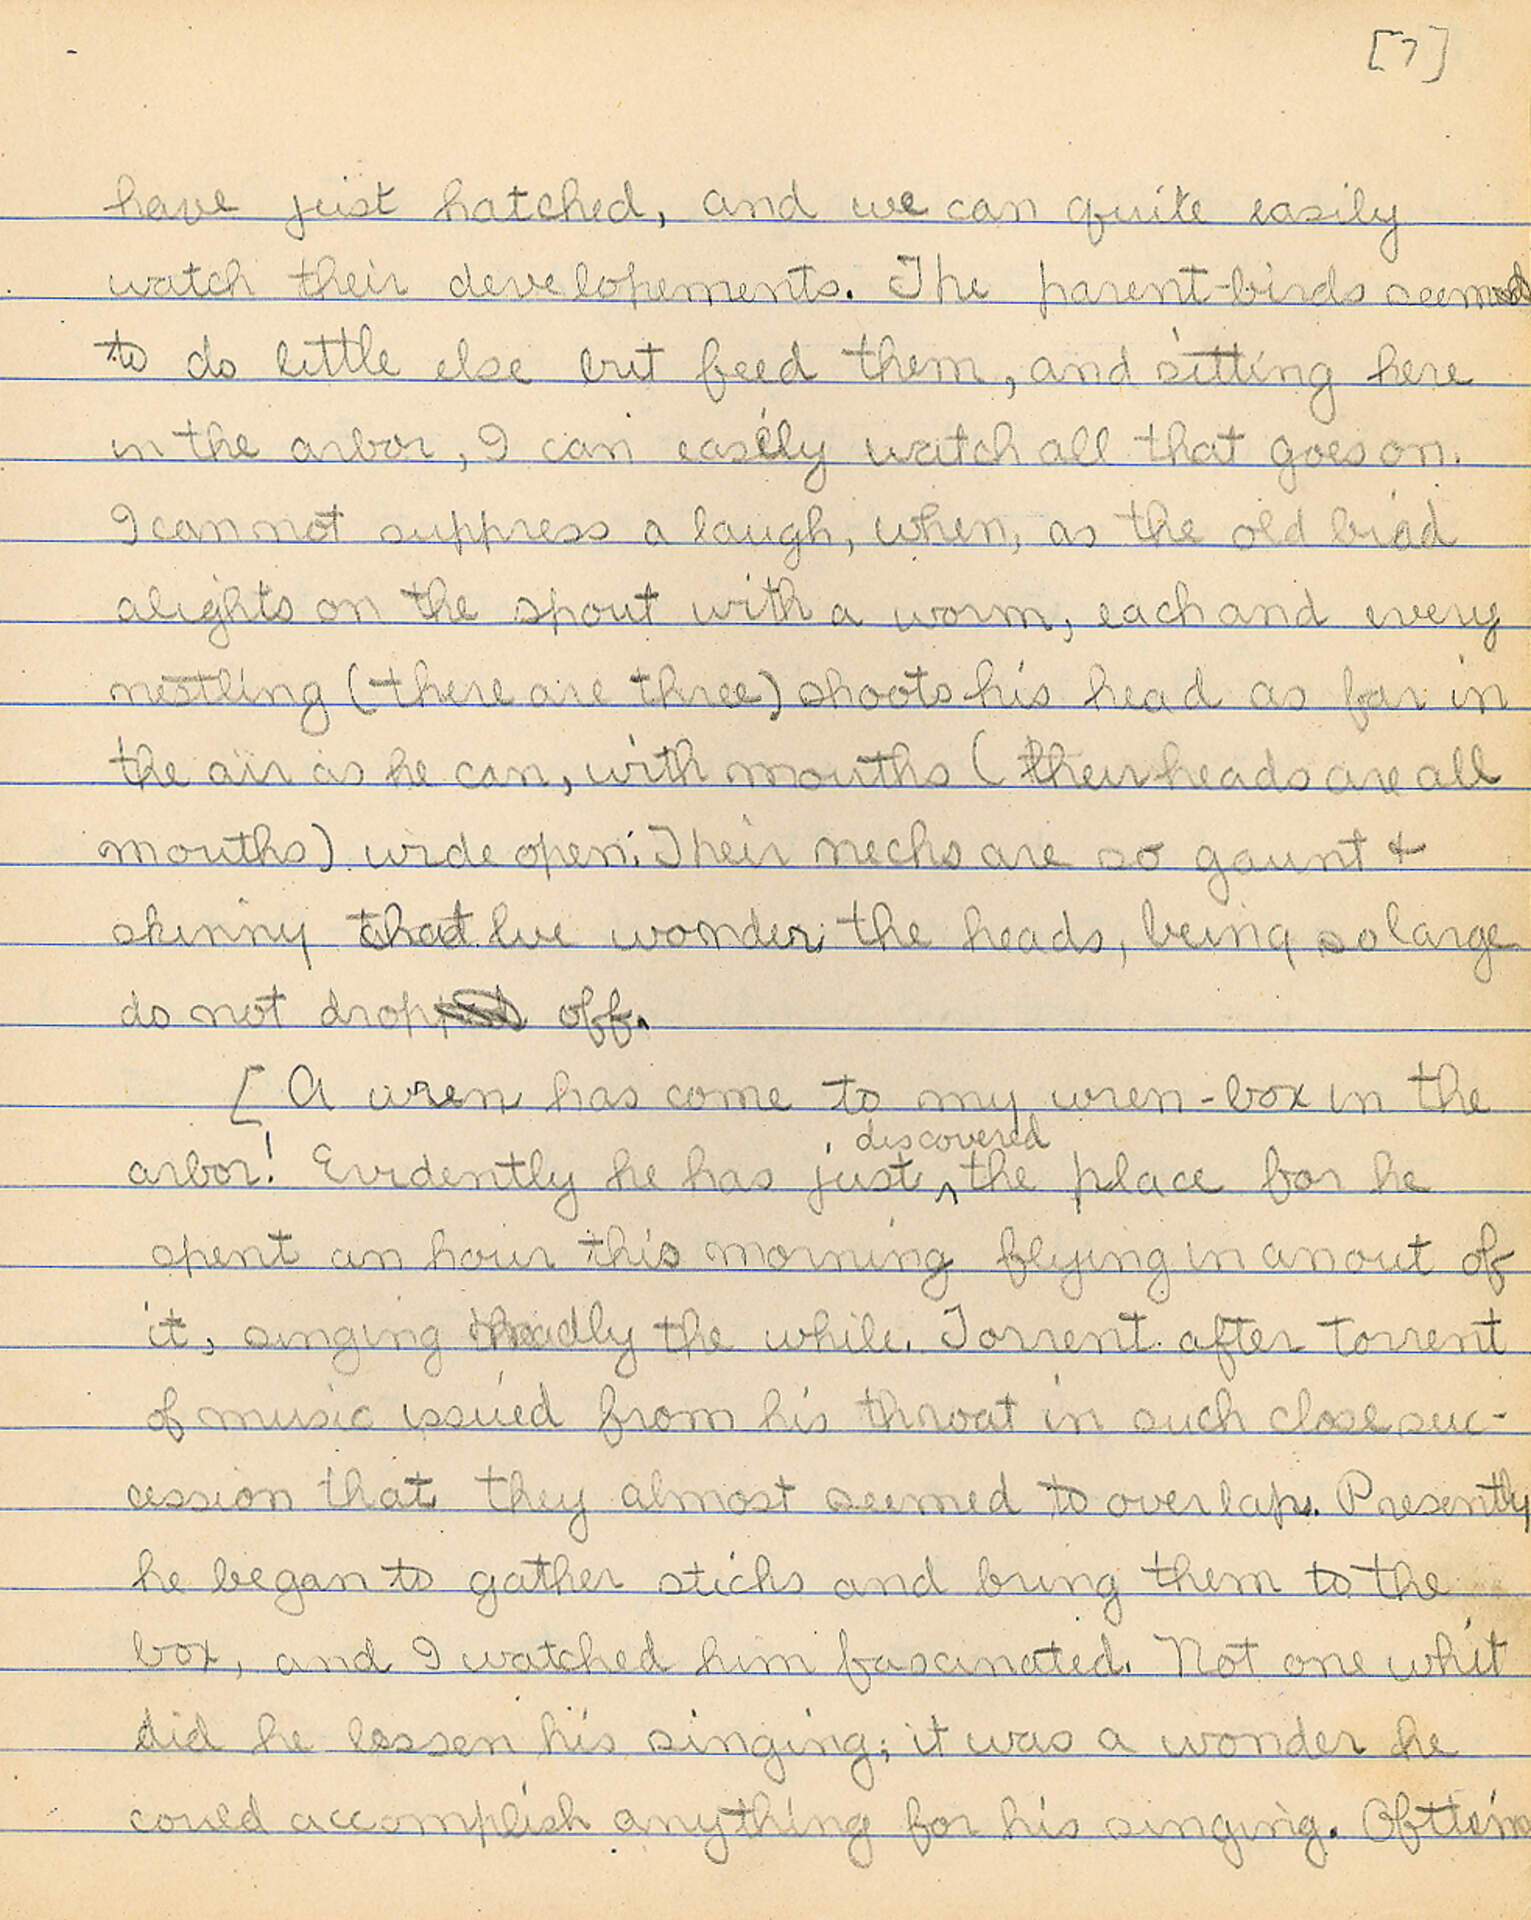 [7]
have just hatched, and we can quite easily
watch their developements. The parent-birds seemed
to do little else but feed them, and sitting here
in the arbor, I can easily watch all that goes on.
I can not suppress a laugh, when, as the old bird
alights on the spout with a worm, each and every
nestling (there are three) shoots his head as far in
the air as he can, with mouths (their heads are all
mouths) wide open. Their necks are so gaunt +
skinny that we wonder the heads, being so large
do not drop off.
[A wren has come to my wren-box in the
arbor! Evidently he has just discovered the place for he
spent an hour this morning flying in an out of
it, singing madly the while. Torrent after torrent
of music issued from his throat in such close suc-
cession that they almost seemed to overlap. Presently
he began to gather sticks and bring them to the
box, and I watched him fascinated. Not one whit
did he lessen his singing; it was a wonder he
could accomplish anything for his singing.